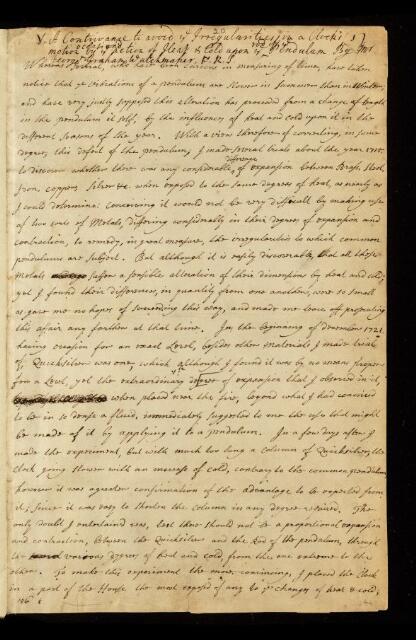 V. A Contrivance to avoid ye Irregularities in a Clock's
motion occasiond by ye action of Heat & Cold upon ye Rod of ye Pendulum By Mr
George Graham Watchmaker F.R.S.
Whereas several, who have been curious in measuring of time, have taken
notice that ye vibrations of a pendulum are slower in Summer than in Winter,
and have very justly supposed this alteration has proceeded from a change of length
in the pendulum it self, by the influences of heat and cold upon it in the
different seasons of the year. With a view therefore of correcting, in some
degree, this defect of the pendulum, I made several trials about the year 1715.
to discover whether there was any considerable difference of expansion between Brass, Steel,
Iron, copper, Silver &c. when exposed to the same degrees of heat, as nearly as
I could determine: conceiving it would not be very difficult by making use
of two sorts of Metals, differing considerably in their degrees of expansion and
contraction, to remedy, in great measure, the irregularities to which common
pendulums are subject. But although it is easily discoverable, that all these
Metals suffer a sensible alteration of their dimensions by heat and cold;
yet I found their differences, in quantity from one another, were so small
as gave me no hopes of succeeding this way, and made me leave off prosecuting
this affair any farther at that time. In the beginning of December 1721.
having occasion for an exact Level, besides other materials I made trial
of Quicksilver was one; which although I found it was by no means proper
for a Level, yet the extraordinary degree of expansion that I observed in it,
when placed near the fire, beyond what I had conceived
to be in so dense a fluid, immediately suggested to me the use that might
be made of it by applying it to a pendulum. In a few days after I
made the experiment, but with much too long a column of Quicksilver, the
clock going slower with an increase of cold, contrary to the common pendulum
however it was a greater confirmation of the advantage to be expected from
it; since it was easy to shorten the column in any degree required. The
only doubt I entertained was, lest there should not be a proportional expansion
and contraction, between the Quicksilver and the Rod of the pendulum, through
the various degrees of heat and cold, from the one extreme to the
other. To make this experiment the more convincing, I placed the Clock
in a part of the House the most exposed of any to ye changes of heat & cold;